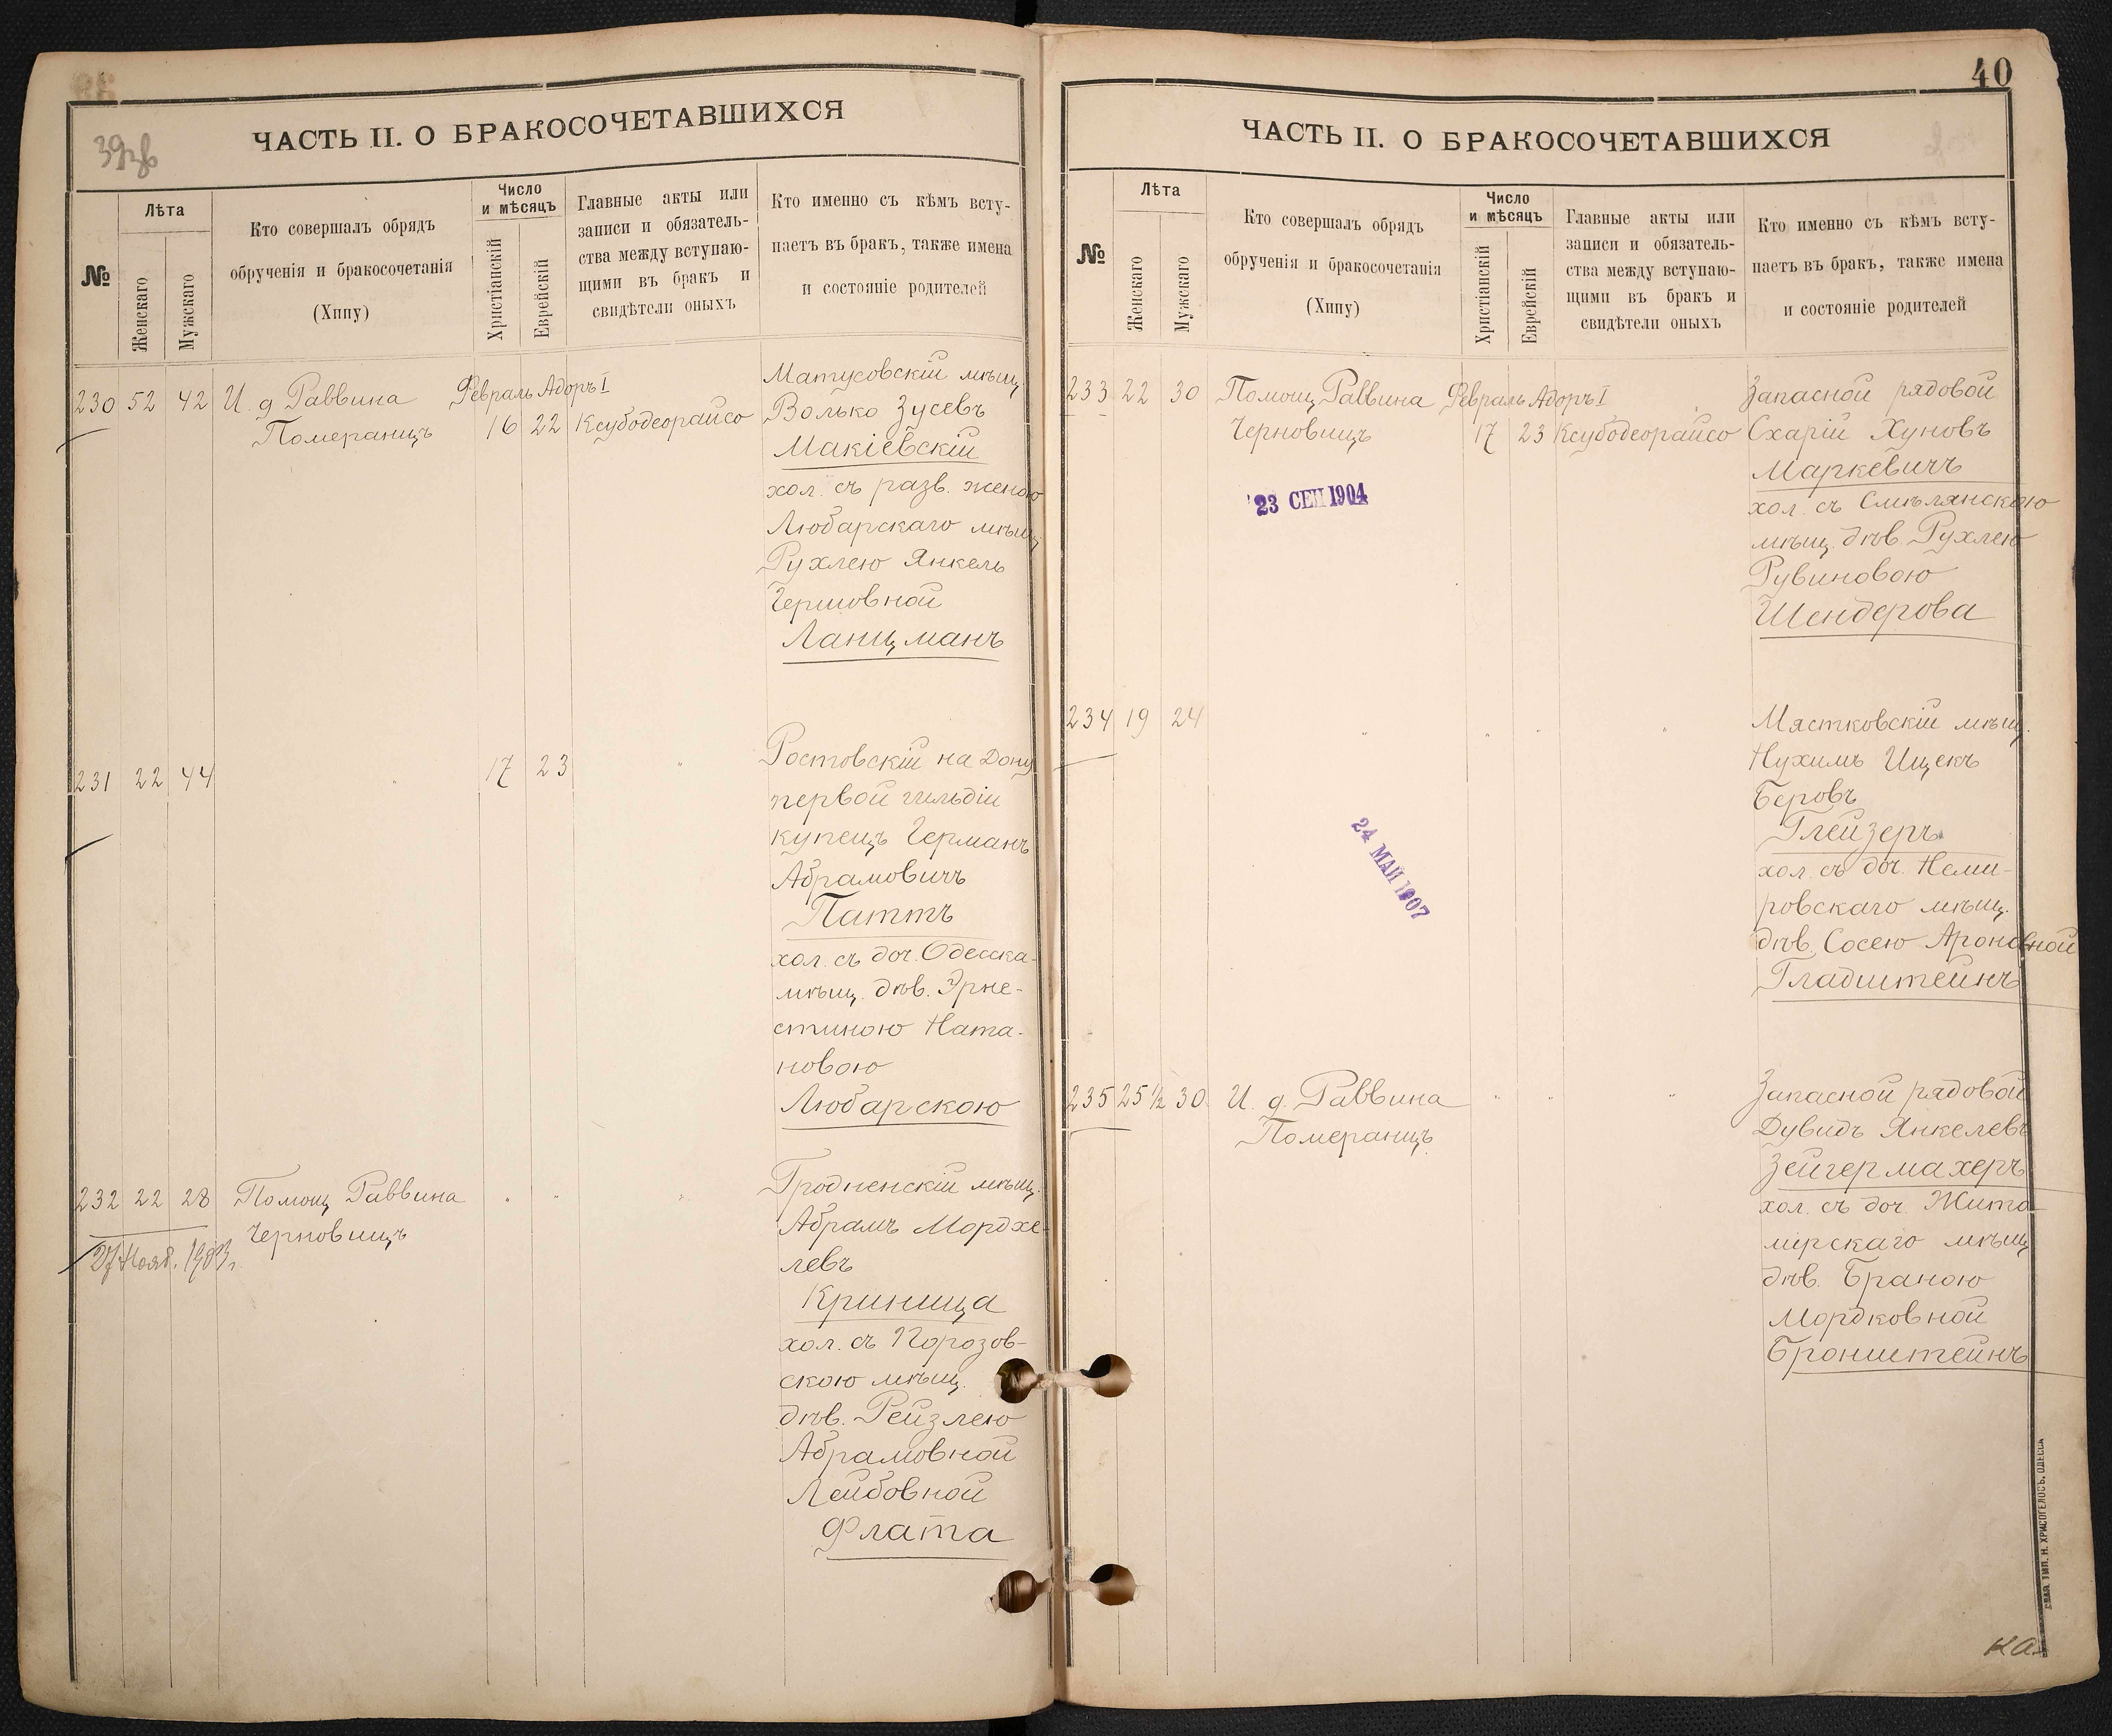 39об
ЧАСТЬ II. О БРАКОСОЧЕТАВШИХСЯ
№
Лѣта
Женскаго
Мужскаго
Кто совершалъ обрядъ
обрученія и бракосочетанія
(Хипу)
Число
и мѣсяцъ
Христіанскій
Еврейскій
Главные акты или
записи и обязатель-
ства между вступаю-
щими въ бракъ и
свидѣтели оныхъ
Кто именно съ кѣмъ всту-
паетъ въ бракъ, также имена
и состояніе родителей
230 52 42 И. д Раввина
Померанцъ
Февраль Адоръ I
16 22 Ксубодеорайсо
Матусовскій мѣщ.
Волько Зусевъ
Макіевскій
хол. съ разв. женою
Любарскаго мѣщ
Рухлею Янкель
Гершовной
Ланцманъ
231 22 44 " 17 23 "
Ростовскій на Дону
первой гильдіи
купецъ Германъ
Абрамовичъ
Паттъ
хол. съ доч. Одесска-
мѣщ. дѣв. Эрне-
стиною Ната-
новою
Любарскою
232 22 28 Помощ Раввина
Черновицъ
" " "
27 Нояб. 1903 г.
Гродненскій мѣщ.
Абрамъ Мордхе-
левъ
Криница
хол. съ Порозов-
скою мѣщ.
дѣв. Рейзлею
Абрамовной
Лейбовной
Флата
40
ЧАСТЬ II. О БРАКОСОЧЕТАВШИХСЯ
№
Лѣта
Женскаго
Мужскаго
Кто совершалъ обрядъ
обрученія и бракосочетанія
(Хипу)
Число
и мѣсяцъ
Христіанскій
Еврейскій
Главные акты или
записи и обязатель-
ства между вступаю-
щими въ бракъ и
свидѣтели оныхъ
Кто именно съ кѣмъ всту-
паетъ въ бракъ, также имена
и состояніе родителей
233 22 30 Помощ Раввина
Черновицъ
Февраль Адоръ I
17 23 Ксубодеорайсо
23 СЕН 1904
Запасной рядовой
Схарій Хуновъ
Маркевичъ
хол. съ Смѣлянскою
мѣщ. дѣв. Рухлею
Рувиновою
Шендерова
234 19 24 " " " "
24 МАЙ 1907
Мястковскій мѣщ.
Нухимъ Ицекъ
Беровъ
Глейзеръ
хол. съ доч. Неми-
ровскаго мѣщ.
дѣв. Сосею Ароновной
Гладштейнъ
235 25 ½ 30. И. д. Раввина
Померанцъ.
" " "
Запасной рядовой
Дувидъ Янкелевъ
Зейгермахеръ
хол. съ доч. Жито-
мірскаго мѣщ
дѣв. Браною
Мордковной
Бронштейнъ
СЛАВ. ТИП. Н. ХРИСОГЕЛОСЪ, ОДЕССА